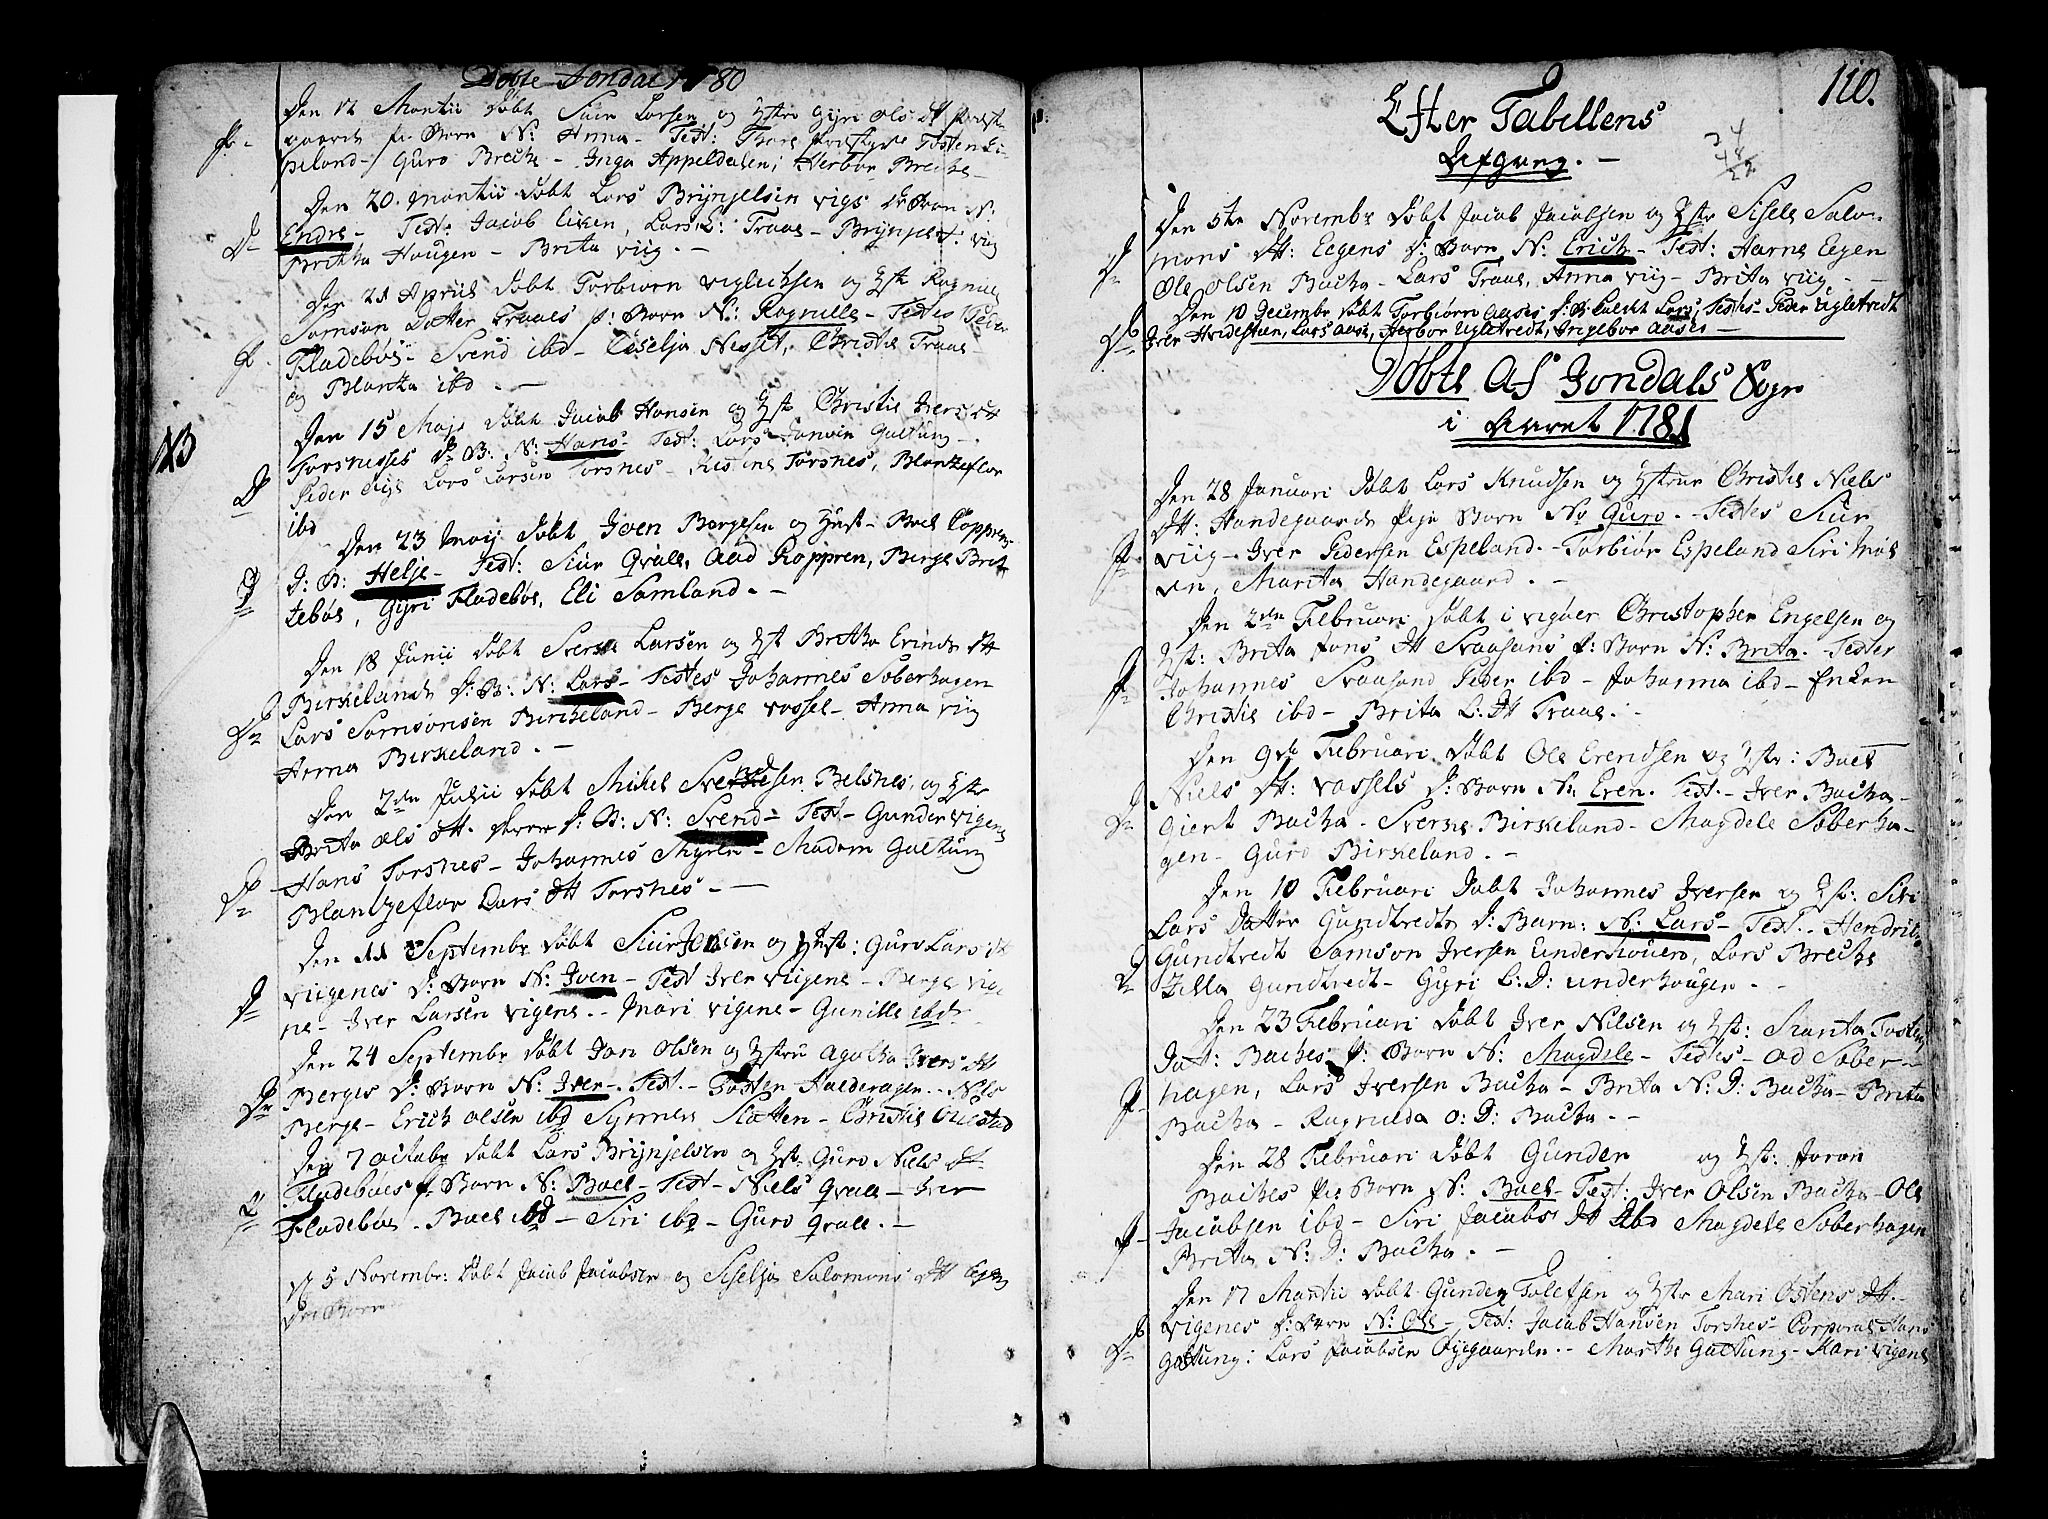 Døbte Jondal 1780
Den 12 Martii Døbt Siur Larsen og Hstr Gyri Ols Dt Præste
gaards P: Barn N: Anna - Test: Tosten
peland - Guro Breche - Inga Appeldalen, Herbor Breche -
Den 20. Martii Døbt Lars Brynjelsen Vigs D: Barn N:
Endre - Test: Jacob Eien, Lars L: Traae - Brynjel Viig
Britha Hougen - Brita Viig. -
Den 21 April Døbt Torbiorn Vigleichsen og Hst Ragnille
Samson Dotter Traaes P: Barn N: Ragnille - Testes Peder
Fladebøe - Svend ibd - Ceselja Nesset, Christie Traae -
og Blanka ibd. -
Den 15 Maji Døbt Jacob Hansen og Hst Christie Iers Dt
Torsnesses D: B: N: Hans - Test: Lars Gattung -
Peder Lars Larsen Torsnes - Kristine Torsnes, Blantzeflor
ibd
Den 23 Maij Døbt Joen Bergesen og Hust - Boel Koppren
D: B: Helje - Test: Siur Qvale, Aad Koppren, Berge Brat
tebøe, Gyri Fladebøe, Eli Samland. -
Den 18 Junii Døbt Sverke Larsen og Hst Britha Erinds Dt
Birkelands D: B: N: Lars - Testes Johannes Soberhagen
Lars Samsonsen Birkeland - Berge Vassel - Anna Viig
Anna Birkeland. -
Den 2den Julii Døbt Mikel Svendsen Belsnes, og Hstr
Brita Ols Dtt. D: B: N: Svend - Test - Gunder Vigene
Hans Torsnes - Johannes Myren - Madam Gattung
Blantzeflor Lars Dt Torsnes. -
Den 11 Septembr Døbt Siur Olsen og Hust: Guro Lars Dt
Viigenes D: Barn N: Joen - Test Iver Viigene - Berge Vige
ne - Iver Larsen Vigene. - Mari Vigene - Gunille ibd
Den 24 Septembr Døbt Jon Olsen og Hstru Agatha Ivers Dt
Berges D: Barn N: Iver - Test - Tosten Halderagen - Nils
Berge - Erich Olsen ibd Synneve Slotten - Christie Ouestad
Den 7 Octobr Døbt Lars Brynjelsen og Hst. Guro Niels Dt -
Fladebøes P: Barn N: Boel - Test - Niels Qvale - Iver
Fladebøe - Boel ibd - Siri ibd - Guro Qvale. -
D 5 Novembr: Døbt Jacob Jacobsen og Siselja Salomons Dt Egen
Drb Barn
110.
Efter Tabellens
Afgang. -
Den 5te Novembr Døbt Jacob Jacobsen og Hstr Sisele Salo-
mons Dt: Eegens D: Barn N: Erich - Test: Aarne Eegen
Ole Olsen Backa - Lars Traae, Anna Viig - Brita Viig. -
Den 10 Decembr Døbt Torbiørn Aases D: B. Caldet Lars, Testes - Peder Ugletvedt
Iver Hvidesteen, Lars Aase, Herbor Ugletvedt, Ingebor Aases -
Døbte Af Jondals Sogn
i Aaret 1781
Den 28 Januari Døbt Lars Knudsen og Hstrue Christie Niels
Dt: Handegaards Pige Barn No Guro. - Testes Siur
Viig - Iver Pedersen Espeland. - Torbiør Espeland Siri Møl
en, Marita Handegaard. -
Den 2den Februari Døbt i Vigøer Christopher Engelsen og
Hst: Brita Jons Dt Svaasans P: Barn N: Brita. - Testes
Johannes Svaasand Peder ibd - Johanna ibd - Enken
Christie ibd - Brita L: Dt Traae. -
Den 9de Februari Døbt Ole Erendsen og Hstr: Boel
Niels Dt: Vassels D: Barn N: Eren. Test. - Iver Backa -
Gient Backa - Sverke Birkeland - Magdele Soberha-
gen - Guro Birkeland. -
Den 10 Februari Døbt Johannes Iversen og Hst: Siri
Lars Datter Gundtvedts D: Barn: N: Lars - Test. - Hendrik
Gundtvedt Samson Iversen Underhouen, Lars Breche
Zilla Gundtvedt - Gyri L: D: underhougen. -
Den 23 Februari Døbt Iver Nilsen og Hst: Manta Tostens
Dat: Baches P: Barn N: Magdele - Testes - Od Sober-
hagen, Lars Iversen Backa - Brita N: D: Backa - Brita
Backa - Ragnilda O: D: Backa. -
Den 28 Februari Døbt Gunder og Hst: Joran
Baches P: Barn N: Boel - Test: Iver Olsen Backa - Ole
Jacobsen ibd - Siri Jacobs Dt ibd Magdele Soberhagen
Brita N: D: Backa. -
Den 17 Martii Døbt Gunder Tolefsen og Hstr Mari Ostens Dt. -
Vigenes D: Barn N: Ole - Test: Jacob Hansen Torsnes - Corporal Hans
Gattung: Lars Jacobsen Øyegaarden. - Marthe Gattung - Kari Vigene